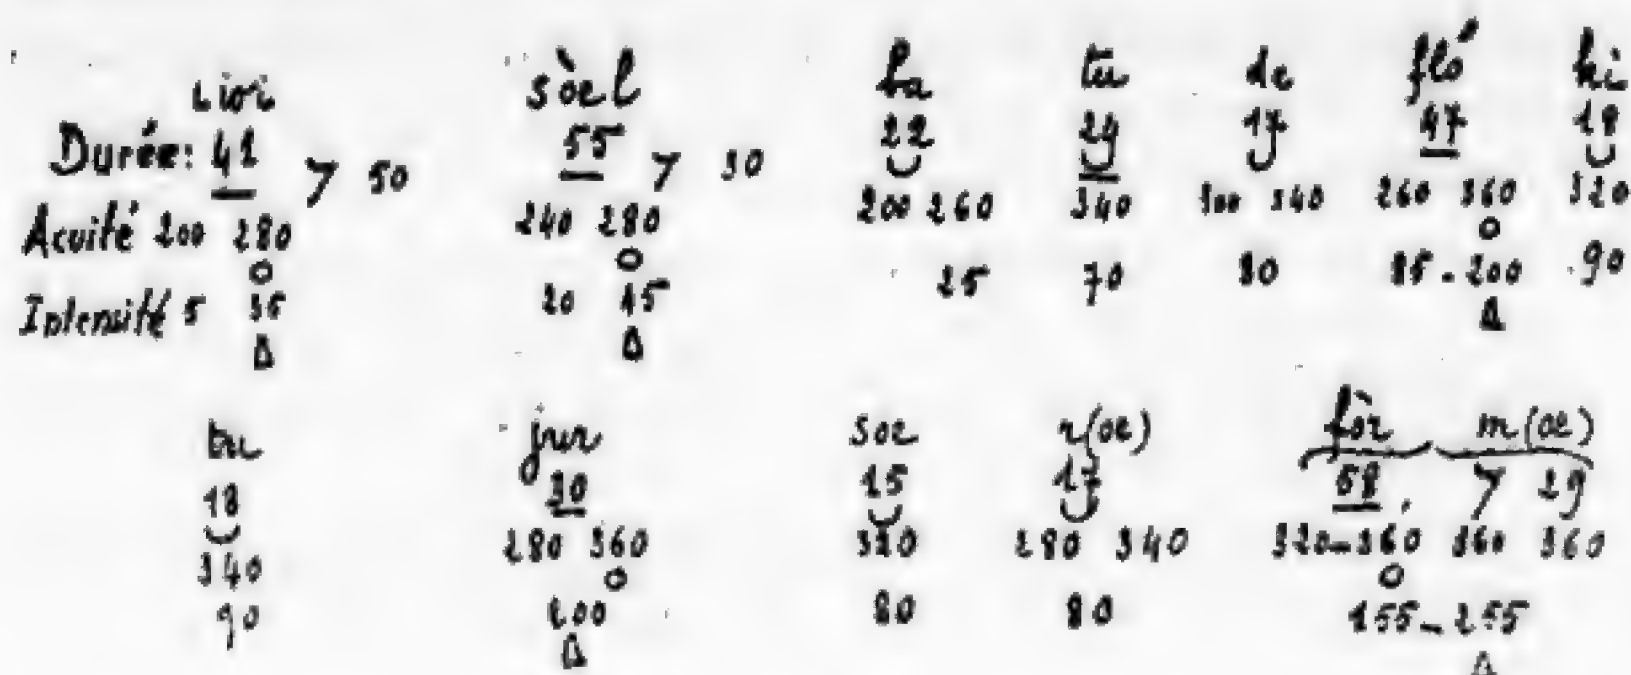 sòel ba tu de fló ki
Durée: 41 γ 50 55 γ 30 22 24 17 47 18
Acuité 200 280 240 280 200 260 340 300 340 260 360 320
Intensité 5 35 20 45 25 70 80 85-200 90
tu jur soe r(oe) fòr m(oe)
18 30 15 17 58 γ 29
340 280 360 320 280 340 320-360 360 360
90 200 80 80 155-255